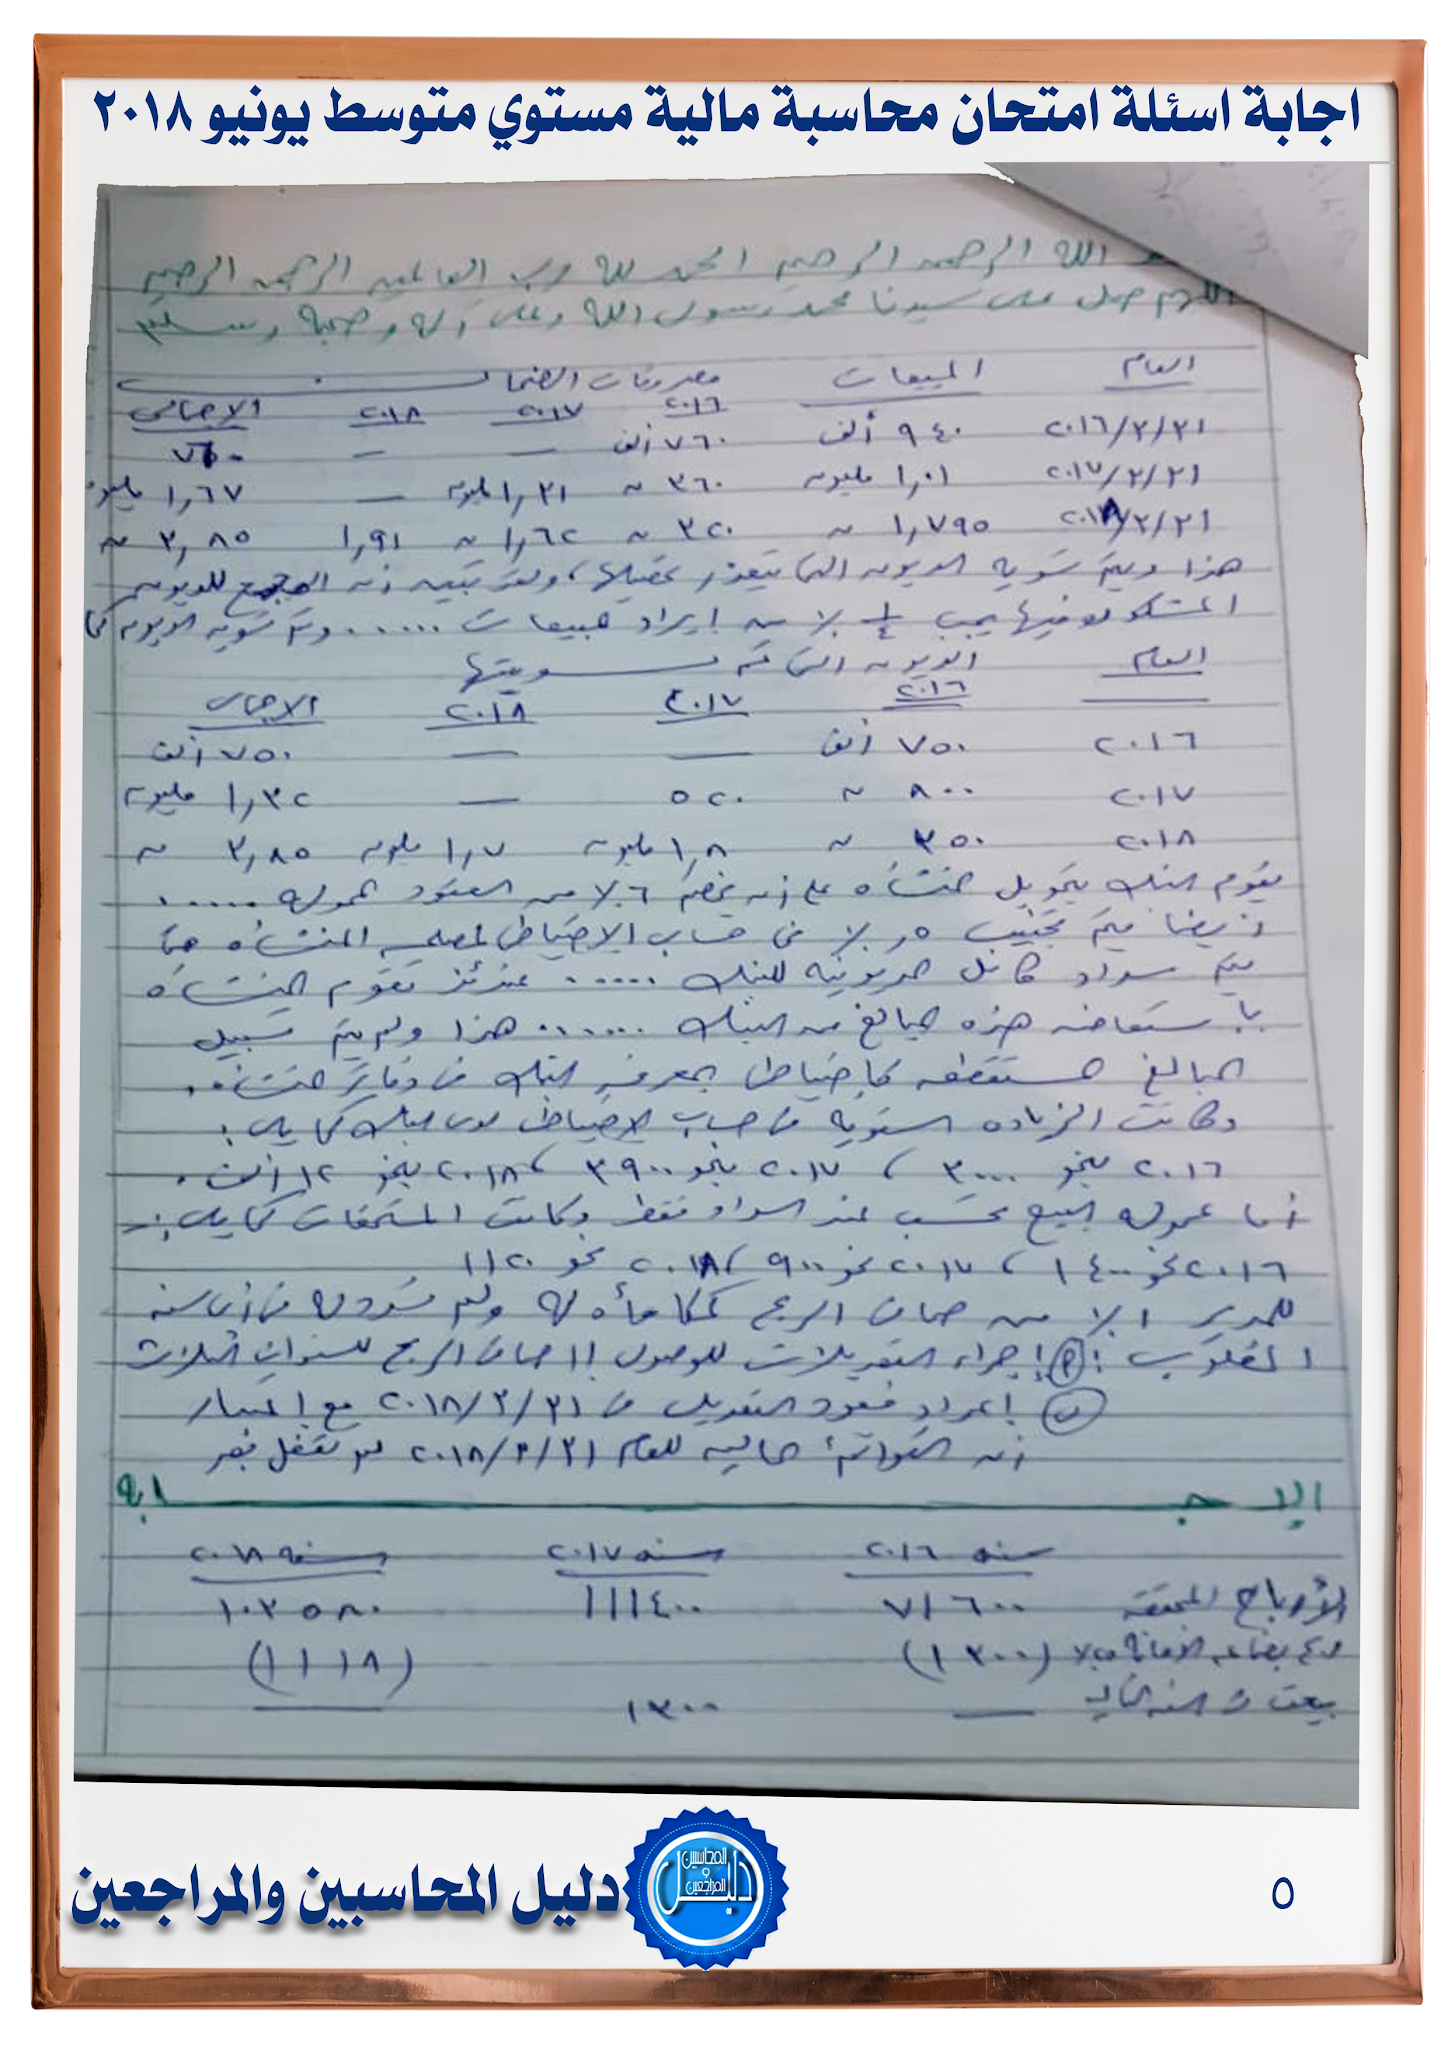 اجابة اسئلة امتحان محاسبة مالية مستوي متوسط يونيو ٢٠١٨
الله الرحمن الرحيم الحمد لله رب العالمين الرحمن الرحيم
اللهم صل على سيدنا محمد رسول الله وعلى آله وصحبه وسلم
العام المبيعات مصروفات الضمان
٢٠١٦ ٢٠١٧ ٢٠١٨ الإجمالى
٢٠١٦/٣/٣١ ٩٤٠ ألف ٧٦٠ ألف — — ٧٦٠
٢٠١٧/٣/٣١ ١,٠١ مليون ٣٦٠ ~ ١,٣١ مليون — ١,٦٧ مليون
٢٠١٨/٣/٣١ ١,٧٩٥ ~ ٣٢٠ ~ ١,٦٢ ~ ١,٩١ ٣,٨٥ ~
هذا ويتم تسوية الديون التى يتعذر تحصيلها، ولقد تبين أن المجمع للديون
المشكوك فيها يجب ١/٤ ٪ من إيراد مبيعات ...... وتم تسوية الديون كما
العام الديون التى تم تسويتها
٢٠١٦ ٢٠١٧ ٢٠١٨ الاجمالى
٢٠١٦ ٧٥٠ ألف — — ٧٥٠ ألف
٢٠١٧ ٨٠٠ ~ ٥٢٠ — ١,٣٢ مليون
٢٠١٨ ٣٥٠ ~ ١,٨ مليون ١,٧ مليون ٣,٨٥ ~
يقوم البنك بتمويل المنشأه على أن يخصم ٦٪ من العقود الممولة ......
أيضا فيتم تجنيب ٥,٪ فى حساب الإحتياطى لمصلحة المنشأه حتى
يتم سداد كامل المديونية للبنك ...... عندئذ تقوم المنشأه
بإستعاضة هذه المبالغ من البنك ...... هذا ولم يتم تسجيل
المبالغ المستقطعه كإحتياطى بمعرفة البنك فى دفاتر المنشأه.
وكانت الزياده السنويه فى حساب الإحتياطى لدى البنك كما يلى:
٢٠١٦ بنحو ٣٠٠٠، ٢٠١٧ بنحو ٣٩٠٠، ٢٠١٨ بنحو ١٢ ألف.
أما عمولة البيع تحسب عند السداد فقط وكانت المستحقات كما يلى:-
٢٠١٦ نحو ١٤٠٠، ٢٠١٧ نحو ٩٠٠، ٢٠١٨ نحو ١١٢٠
للمدير ١٪ من صافى الربح كمكافأه له ولم تسدد له فى أى سنه
المطلوب: (أ) إجراء التعديلات للوصول إلى صافى الربح للسنوات الثلاث
(ب) إعداد قيود التعديل فى ٢٠١٨/٣/٣١ مع إعتبار
أن القوائم الماليه للعام ٢٠١٨/٣/٣١ لم تقفل بعد
الإجـــــابة
سنة ٢٠١٦ سنة ٢٠١٧ سنة ٢٠١٨
الأرباح المحققة ٧١٦٠٠ ١١١٤٠٠ ١٠٣٥٨٠
بضاعة الأمانة (١٣٠٠) (١١١٨)
بيعت فى السنه التاليه — ١٣٠٠ —
دليل المحاسبين والمراجعين
دليل
المحاسبين
و
المراجعين
٥